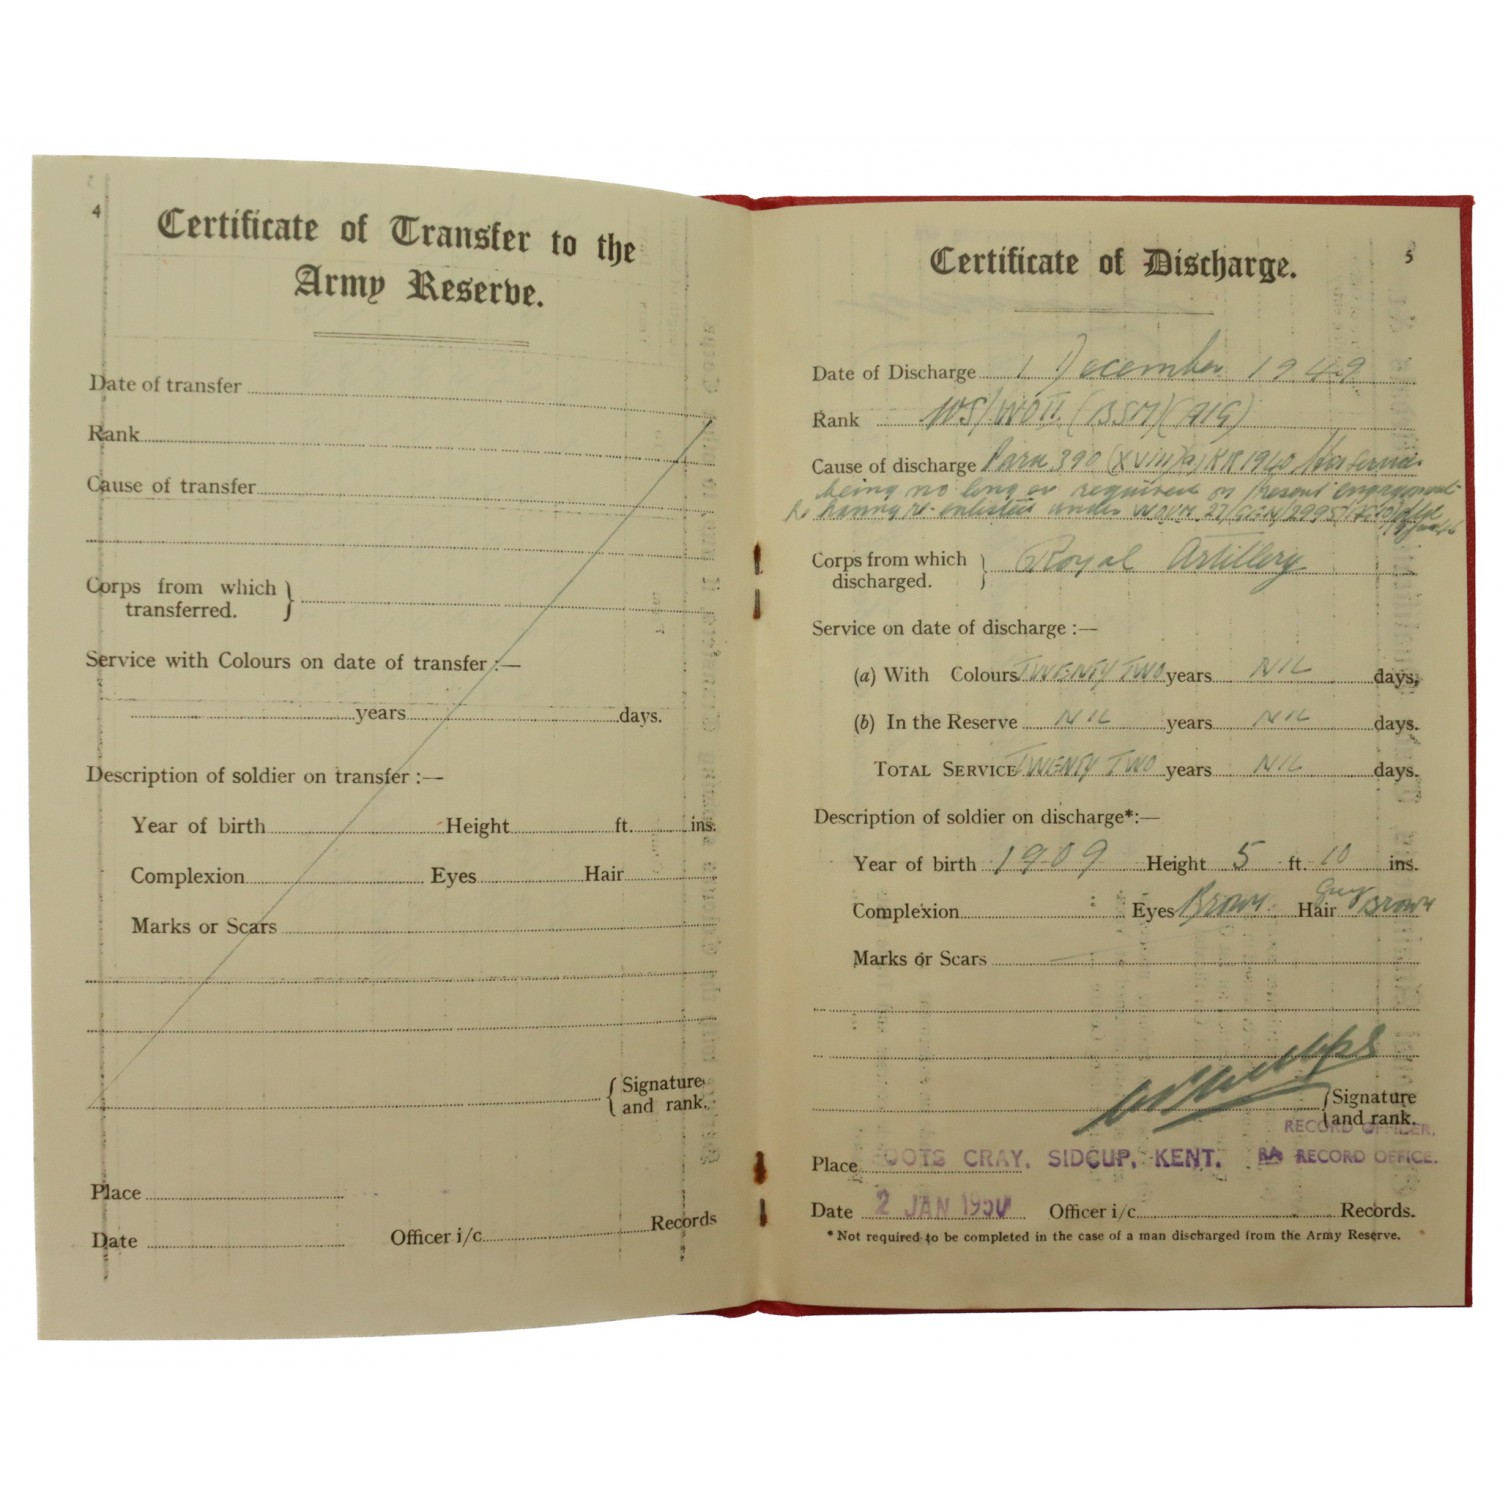 4
Certificate of Transfer to the
Army Reserve.
Date of transfer
Rank
Cause of transfer
Corps from which
transferred.
Service with Colours on date of transfer :—
years days.
Description of soldier on transfer :—
Year of birth Height ft. ins.
Complexion Eyes Hair
Marks or Scars
Signature
and rank.
Place
Date Officer i/c Records
5
Certificate of Discharge.
Date of Discharge 1 December 1949
Rank WS/WOII (BSM)(AIG)
Cause of discharge Para 390 (XVIII)(a) KR 1940 His services
being no longer required on present engagement
he having re-enlisted under
Corps from which Royal Artillery
discharged.
Service on date of discharge :—
(a) With Colours TWENTY TWO years NIL days,
(b) In the Reserve NIL years NIL days.
TOTAL SERVICE TWENTY TWO years NIL days.
Description of soldier on discharge*:—
Year of birth 1909 Height 5 ft. 10 ins.
Complexion Eyes Brown Hair Grey Brown
Marks or Scars
Signature
and rank.
RECORD OFFICER,
Place OOTS CRAY, SIDCUP, KENT. RA RECORD OFFICE.
Date 2 JAN 1950 Officer i/c Records.
*Not required to be completed in the case of a man discharged from the Army Reserve.